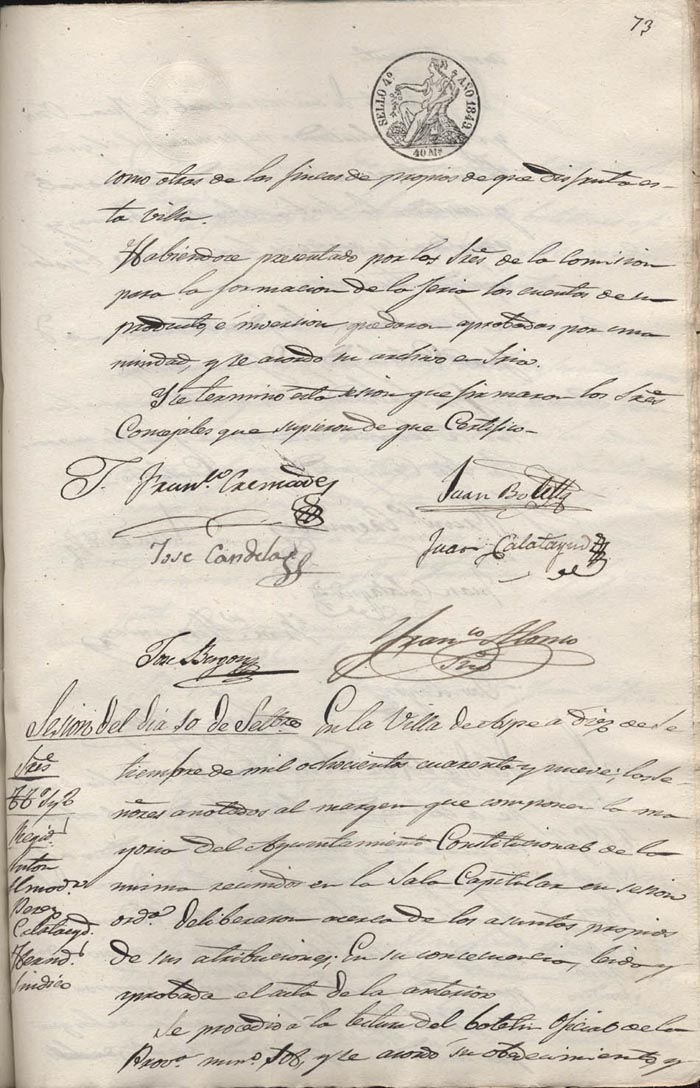 73
SELLO 4º AÑO 1849
40 Ms
como otras de las fincas de propios de que disfruta es-
ta villa.
Habiéndose presentado por los Sres de la Comision
para la formacion de la feria las cuentas de su
producto, é inversion quedaron aprobadas por una
nimidad, y se acordó su archivo en Sria.
Y se terminó esta sesion que firmaron los Sres
Concejales que supieron de que Certifico-
Franco Cremades
Juan
José Candela
Juan Calatayud
José
Franco
Srio
Sesion del dia 10 de Setbre En la Villa de Aspe a diez de Se
Sres
tiembre de mil ochocientos cuarenta y nueve; los Se
ñores anotados al margen que componen la ma
Regid
yoria del Ayuntamiento Constitucional de la
Anton
misma reunidos en la Sala Capitular en sesion
Almodr
Perez
orda deliberaron acerca de los asuntos propios
Calatayd
de sus atribuciones; En su consecuencia, leida y
Hernd
Sindico
aprobada el acta de la anterior
Se procedió á la lectura del boletin Oficial de la
Prova numo 108, y se acordó su obedecimiento y